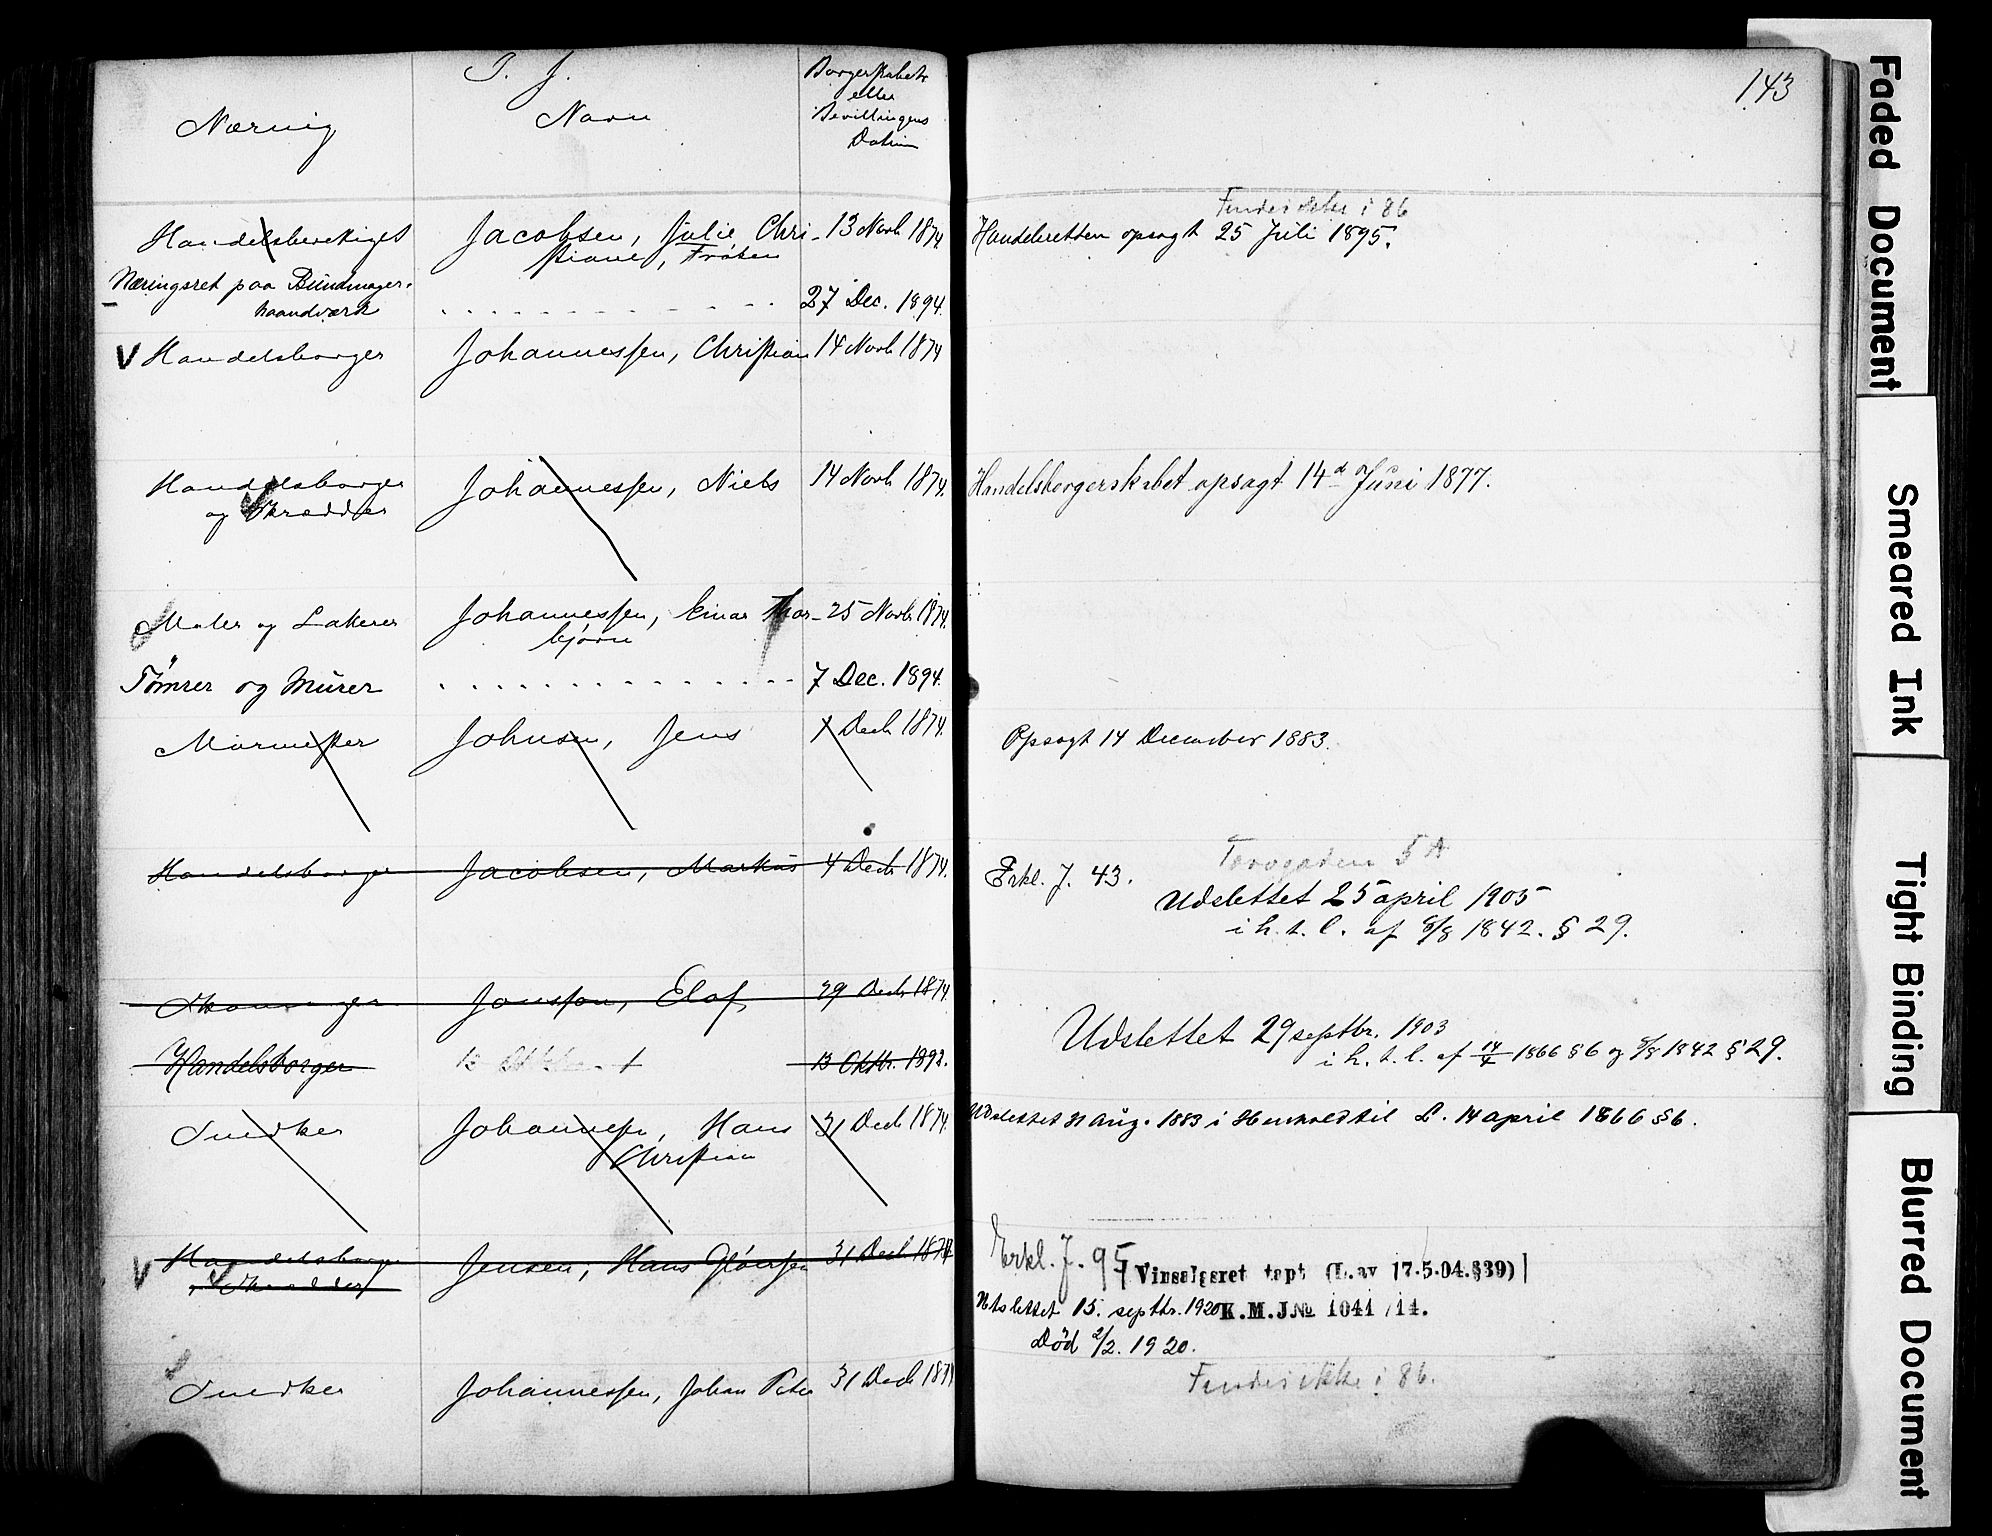 I. J.
Næring
Navn
Borgerskabets
eller
Bevillingens
Datum
143
Findes ikke i 86
Handelsberettiget Jacobsen, Julie Chri- 13 Novb 1874 Handelsretten opsagt 25 Juli 1895.
stiane, Frøken
Næringsret paa Bundmager- 27 Dec. 1894.
haandværk
V Handelsborger Johannessen, Christian 14 Novb 1874
Handelsborger Johannessen, Niels 14 Novb 1874. Handelsborgerskabet opsagt 14d Juni 1877.
og Skrædder
Maler og Lakerer Johannessen, Einar Thor- 25 Novb 1874.
bjørn
Tømrer og Murer 7 Dec. 1894.
Murmester Johnsen, Jens 1 Decb 1874. Opsagt 14 December 1883.
Torvgaden 5 A
Handelsborger Jacobsen, Markus 4 Decb 1874. Erkl. J. 43.
Udslettet 25 april 1905
i h. t. l. af 8/8 1842. § 29.
Jonsson, Elof 29 Decb 1874.
Udslettet 29 septbr. 1903
Handelsborger 13 Oktbr. 1892. i h. t. l. af 14/4 1866 § 6 og 8/8 1842 § 29.
Snedker Johannessen, Hans 31 Decb 1874. Udslettet 21 Aug. 1883 i Henhold til L. 14 april 1866 § 6.
Christian
V Handelsborger Jensen, Hans 31 Decb 1874 Erkl. J. 95
Skrædder
Vinsalgsret tapt (L. av 17.5.04.§39)
Utslettet 15. septbr. 1920 K.M.J.№ 1041/14.
Død 2/2. 1920.
Snedker Johannessen, Johan Peter 31 Decb 1874 Findes ikke i 86.
Faded Document
Smeared Ink
Tight Binding
Blurred Document